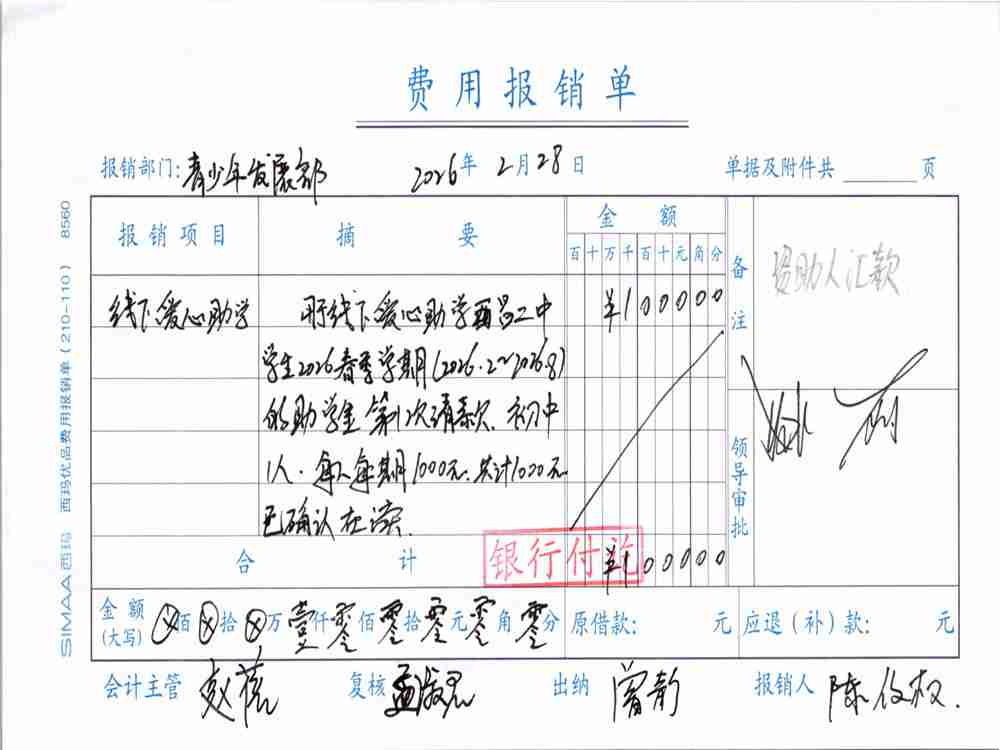 费用报销单
报销部门: 青少年发展部 2026年 2月28日 单据及附件共 页
报销项目 摘要 金额 备注
百 十 万 千 百 十 元 角 分
线下爱心助学 用于线下爱心助学西昌二中 ¥100000 资助人汇款
学生2026春季学期(2026.2~2026.8)
的助学金 第1次请款. 初中
1人. 每人每期1000元. 共计1000元
已确认在读.
领导审批
合计 ¥100000
银行付讫
金额(大写) ⊗佰⊗拾⊗万壹仟零佰零拾零元零角零分 原借款: 元 应退(补)款: 元
会计主管 复核 出纳 曾静 报销人
SIMAA西玛 西玛优品费用报销单(210-110) 8560